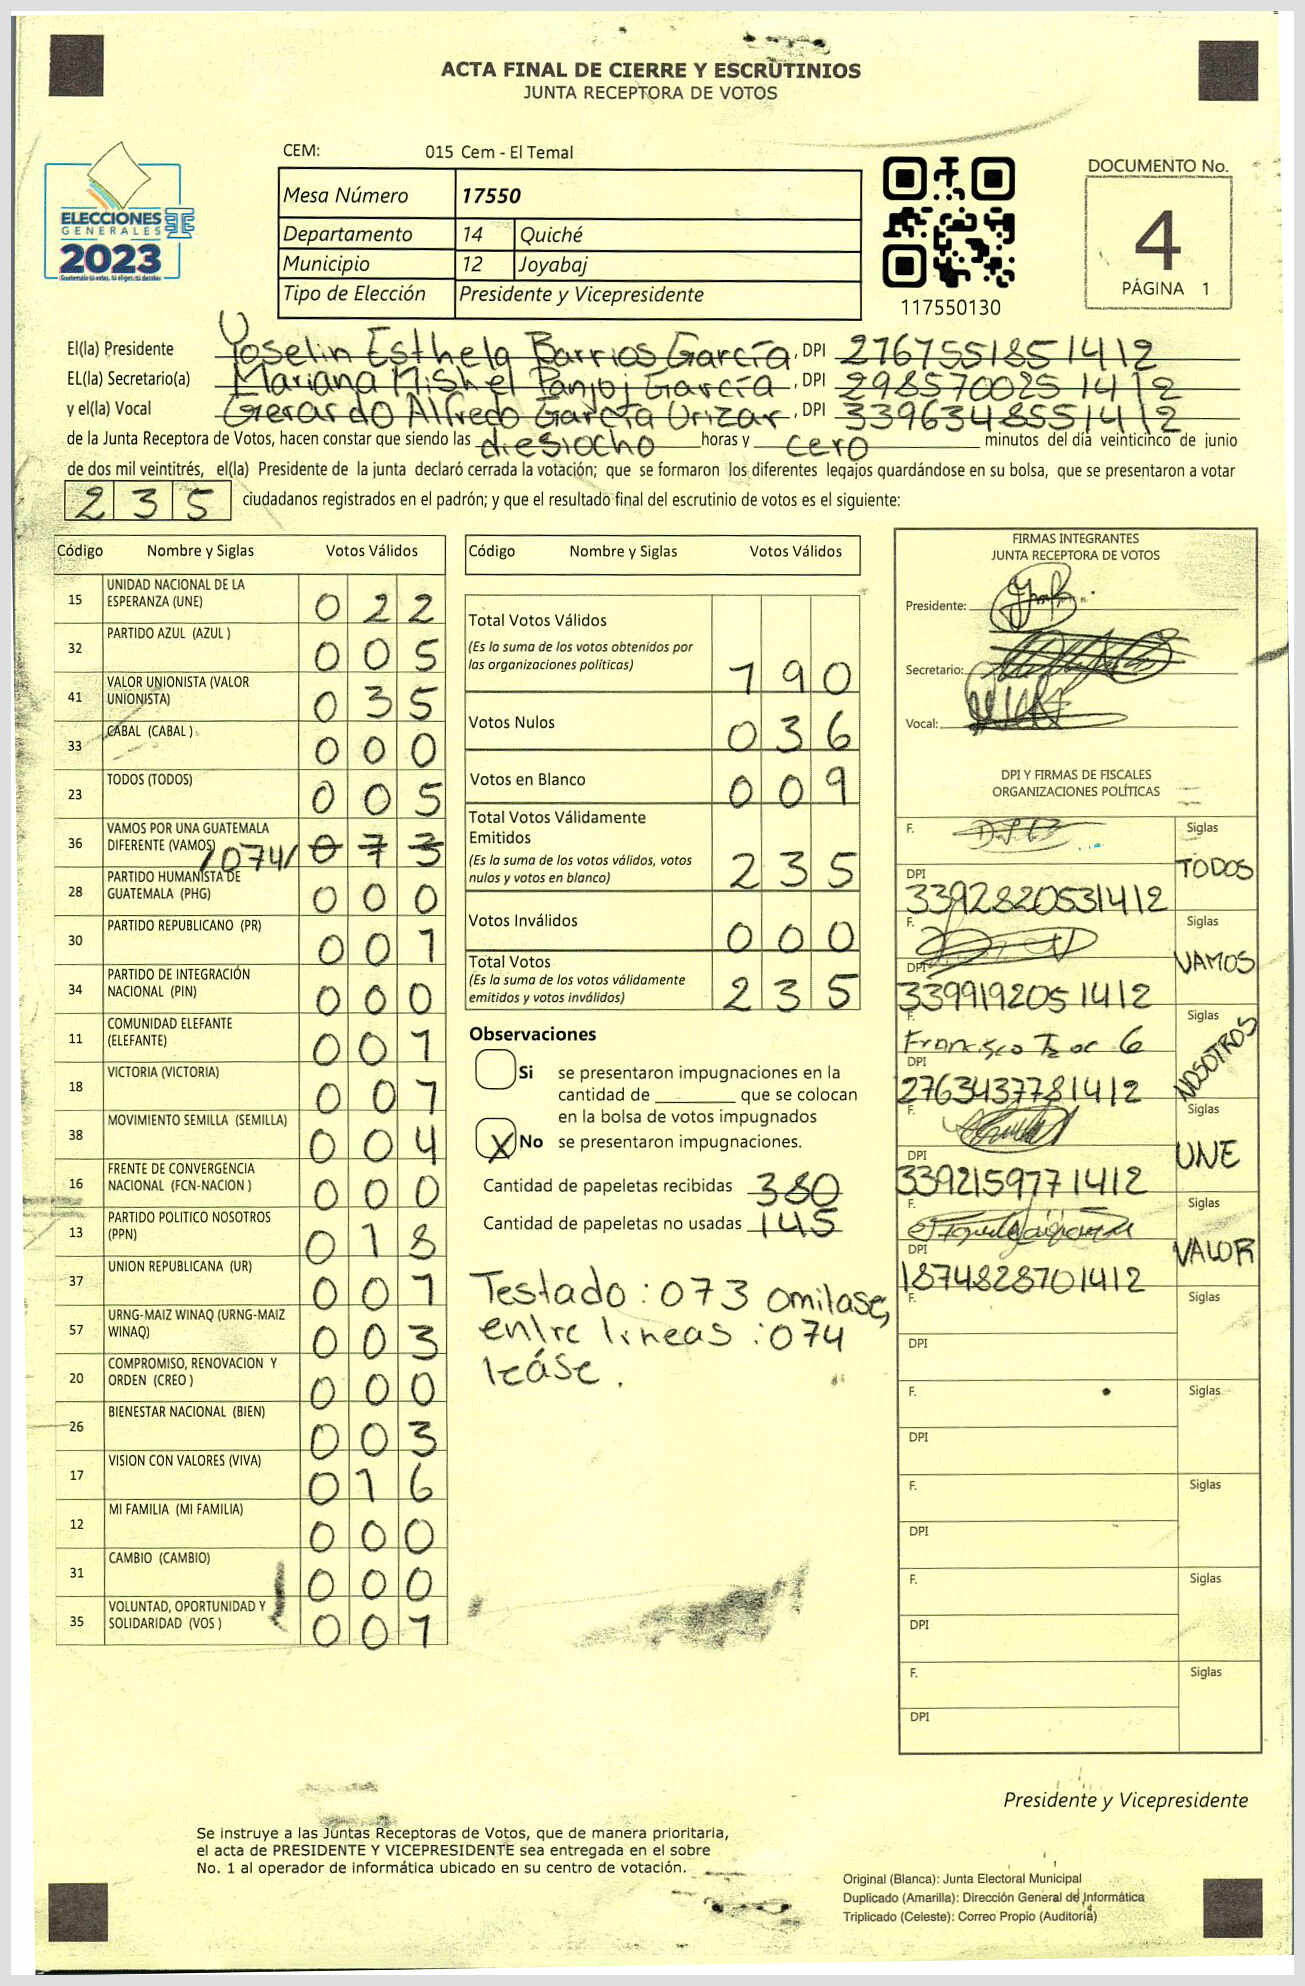 ACTA FINAL DE CIERRE Y ESCRUTINIOS
JUNTA RECEPTORA DE VOTOS
ELECCIONES
GENERALES
2023
CEM: 015 Cem - El Temal
Mesa Número 17550
Departamento 14 Quiché
Municipio 12 Joyabaj
Tipo de Elección Presidente y Vicepresidente
117550130
DOCUMENTO No.
4
PÁGINA 1
El(la) Presidente Yoselin Esthela Barrios García, DPI 2767551851412
EL(la) Secretario(a) Mariana Mishel Panjoj García, DPI 2985700251412
y el(la) Vocal Gerardo Alfredo García Urizar, DPI 3396348551412
de la Junta Receptora de Votos, hacen constar que siendo las diesiocho horas y cero minutos del día veinticinco de junio
de dos mil veintitrés, el(la) Presidente de la junta declaró cerrada la votación; que se formaron los diferentes legajos quardándose en su bolsa, que se presentaron a votar
235 ciudadanos registrados en el padrón; y que el resultado final del escrutinio de votos es el siguiente:
Código Nombre y Siglas Votos Válidos
15 UNIDAD NACIONAL DE LA ESPERANZA (UNE) 022
32 PARTIDO AZUL (AZUL ) 005
41 VALOR UNIONISTA (VALOR UNIONISTA) 035
33 CABAL (CABAL ) 000
23 TODOS (TODOS) 005
36 VAMOS POR UNA GUATEMALA DIFERENTE (VAMOS) /074/ 073
28 PARTIDO HUMANISTA DE GUATEMALA (PHG) 000
30 PARTIDO REPUBLICANO (PR) 001
34 PARTIDO DE INTEGRACIÓN NACIONAL (PIN) 000
11 COMUNIDAD ELEFANTE (ELEFANTE) 001
18 VICTORIA (VICTORIA) 001
38 MOVIMIENTO SEMILLA (SEMILLA) 004
16 FRENTE DE CONVERGENCIA NACIONAL (FCN-NACION ) 000
13 PARTIDO POLITICO NOSOTROS (PPN) 018
37 UNION REPUBLICANA (UR) 001
57 URNG-MAIZ WINAQ (URNG-MAIZ WINAQ) 003
20 COMPROMISO, RENOVACION Y ORDEN (CREO ) 000
26 BIENESTAR NACIONAL (BIEN) 003
17 VISION CON VALORES (VIVA) 016
12 MI FAMILIA (MI FAMILIA) 000
31 CAMBIO (CAMBIO) 000
35 VOLUNTAD, OPORTUNIDAD Y SOLIDARIDAD (VOS ) 001
Código Nombre y Siglas Votos Válidos
Total Votos Válidos
(Es la suma de los votos obtenidos por
las organizaciones políticas) 190
Votos Nulos 036
Votos en Blanco 009
Total Votos Válidamente
Emitidos
(Es la suma de los votos válidos, votos
nulos y votos en blanco) 235
Votos Inválidos 000
Total Votos
(Es la suma de los votos válidamente
emitidos y votos inválidos) 235
Observaciones
Si se presentaron impugnaciones en la
cantidad de ________ que se colocan
en la bolsa de votos impugnados
X No se presentaron impugnaciones.
Cantidad de papeletas recibidas 380
Cantidad de papeletas no usadas 145
Testado : 073 omitase,
entre lineas : 074
léase.
FIRMAS INTEGRANTES
JUNTA RECEPTORA DE VOTOS
Presidente:
Secretario:
Vocal:
DPI Y FIRMAS DE FISCALES
ORGANIZACIONES POLÍTICAS
F. Siglas TODOS
DPI 3392820531412
F. Siglas VAMOS
DPI 3399192051412
F. Francisco Siglas NOSOTROS
DPI 2763437781412
F. Siglas UNE
DPI 3392159771412
F. Siglas VALOR
DPI 1874828701412
F. Siglas
DPI
F. Siglas
DPI
F. Siglas
DPI
F. Siglas
DPI
F. Siglas
DPI
Presidente y Vicepresidente
Se instruye a las Juntas Receptoras de Votos, que de manera prioritaria,
el acta de PRESIDENTE Y VICEPRESIDENTE sea entregada en el sobre
No. 1 al operador de informática ubicado en su centro de votación.
Original (Blanca): Junta Electoral Municipal
Duplicado (Amarilla): Dirección General de Informática
Triplicado (Celeste): Correo Propio (Auditoría)